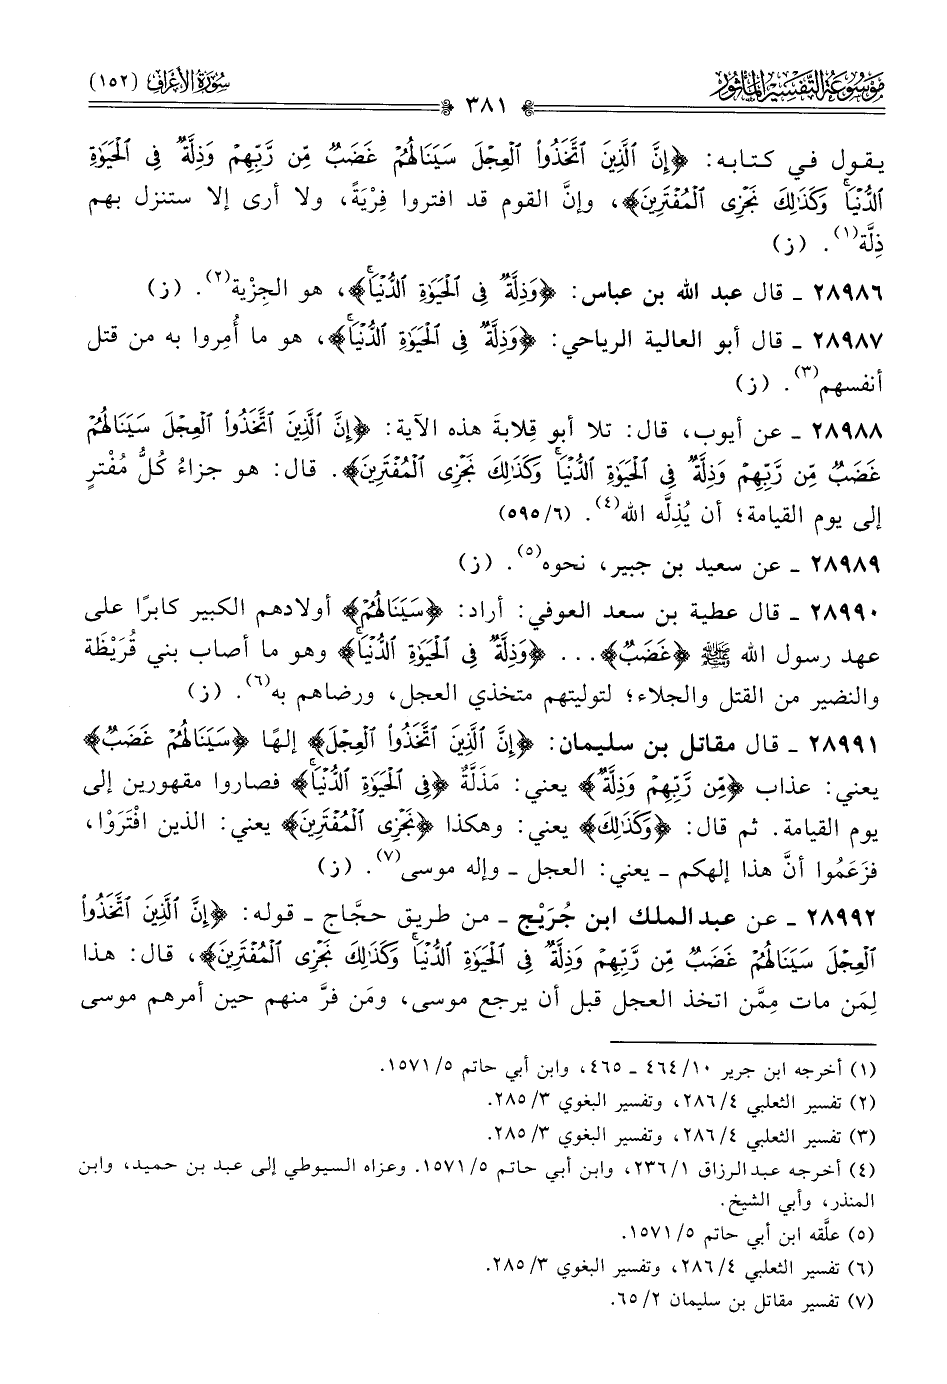 مَوْسُوعَةُ التَّفْسِيرِ المَأْثُورِ
سُورَةُ الأَعْرَافِ (١٥٢)
٣٨١
يقول في كتابه: ﴿إِنَّ الَّذِينَ اتَّخَذُوا الْعِجْلَ سَيَنَالُهُمْ غَضَبٌ مِّن رَّبِّهِمْ وَذِلَّةٌ فِي الْحَيَوٰةِ
الدُّنْيَا ۚ وَكَذَٰلِكَ نَجْزِي الْمُفْتَرِينَ﴾، وإنَّ القوم قد افتروا فِرْيَةً، ولا أرى إلا ستنزل بهم
ذِلَّة(١). (ز)
٢٨٩٨٦ ـ قال عبد الله بن عباس: ﴿وَذِلَّةٌ فِي الْحَيَوٰةِ الدُّنْيَا ۚ﴾، هو الجِزْية(٢). (ز)
٢٨٩٨٧ ـ قال أبو العالية الرياحي: ﴿وَذِلَّةٌ فِي الْحَيَوٰةِ الدُّنْيَا ۚ﴾، هو ما أُمِروا به من قتل
أنفسهم(٣). (ز)
٢٨٩٨٨ ـ عن أيوب، قال: تلا أبو قِلابةَ هذه الآية: ﴿إِنَّ الَّذِينَ اتَّخَذُوا الْعِجْلَ سَيَنَالُهُمْ
غَضَبٌ مِّن رَّبِّهِمْ وَذِلَّةٌ فِي الْحَيَوٰةِ الدُّنْيَا ۚ وَكَذَٰلِكَ نَجْزِي الْمُفْتَرِينَ﴾. قال: هو جزاءُ كُلُّ مُفْترٍ
إلى يوم القيامة؛ أن يُذِلَّه الله(٤). (٥٩٥/٦)
٢٨٩٨٩ ـ عن سعيد بن جبير، نحوه(٥). (ز)
٢٨٩٩٠ ـ قال عطية بن سعد العوفي: أراد: ﴿سَيَنَالُهُمْ﴾ أولادهم الكبير كابرًا على
عهد رسول الله ﷺ ﴿غَضَبٌ﴾... ﴿وَذِلَّةٌ فِي الْحَيَوٰةِ الدُّنْيَا ۚ﴾ وهو ما أصاب بني قُرَيْظَة
والنضير من القتل والجلاء؛ لتوليتهم متخذي العجل، ورضاهم به(٦). (ز)
٢٨٩٩١ ـ قال مقاتل بن سليمان: ﴿إِنَّ الَّذِينَ اتَّخَذُوا الْعِجْلَ﴾ إلهًا ﴿سَيَنَالُهُمْ غَضَبٌ﴾
يعني: عذاب ﴿مِّن رَّبِّهِمْ وَذِلَّةٌ﴾ يعني: مَذَلَّةٌ ﴿فِي الْحَيَوٰةِ الدُّنْيَا ۚ﴾ فصاروا مقهورين إلى
يوم القيامة. ثم قال: ﴿وَكَذَٰلِكَ﴾ يعني: وهكذا ﴿نَجْزِي الْمُفْتَرِينَ﴾ يعني: الذين افْتَرَوْا،
فزَعَمُوا أنَّ هذا إلهكم ـ يعني: العجل ـ وإله موسى(٧). (ز)
٢٨٩٩٢ ـ عن عبد الملك ابن جُرَيْج ـ من طريق حجَّاج ـ قوله: ﴿إِنَّ الَّذِينَ اتَّخَذُوا
الْعِجْلَ سَيَنَالُهُمْ غَضَبٌ مِّن رَّبِّهِمْ وَذِلَّةٌ فِي الْحَيَوٰةِ الدُّنْيَا ۚ وَكَذَٰلِكَ نَجْزِي الْمُفْتَرِينَ﴾، قال: هذا
لِمَن مات مِمَّن اتخذ العجل قبل أن يرجع موسى، ومَن فرَّ منهم حين أمرهم موسى
(١) أخرجه ابن جرير ١٠/ ٤٦٤ ـ ٤٦٥، وابن أبي حاتم ٥/ ١٥٧١.
(٢) تفسير الثعلبي ٤/ ٢٨٦، وتفسير البغوي ٣/ ٢٨٥.
(٣) تفسير الثعلبي ٤/ ٢٨٦، وتفسير البغوي ٣/ ٢٨٥.
(٤) أخرجه عبد الرزاق ١/ ٢٣٦، وابن أبي حاتم ٥/ ١٥٧١. وعزاه السيوطي إلى عبد بن حميد، وابن
المنذر، وأبي الشيخ.
(٥) علَّقه ابن أبي حاتم ٥/ ١٥٧١.
(٦) تفسير الثعلبي ٤/ ٢٨٦، وتفسير البغوي ٣/ ٢٨٥.
(٧) تفسير مقاتل بن سليمان ٢/ ٦٥.